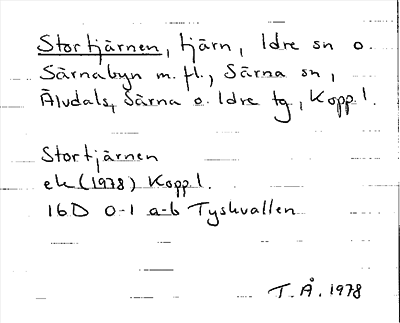 Stortjärnen, tjärn, Idre sn o.
Särnabyn m. fl., Särna sn,
Älvdals, Särna o. Idre tg, Koppl.
Stortjärnen
ek (1978) Koppl.
16D 0-1 a-b Tyskvallen
T.Å. 1978